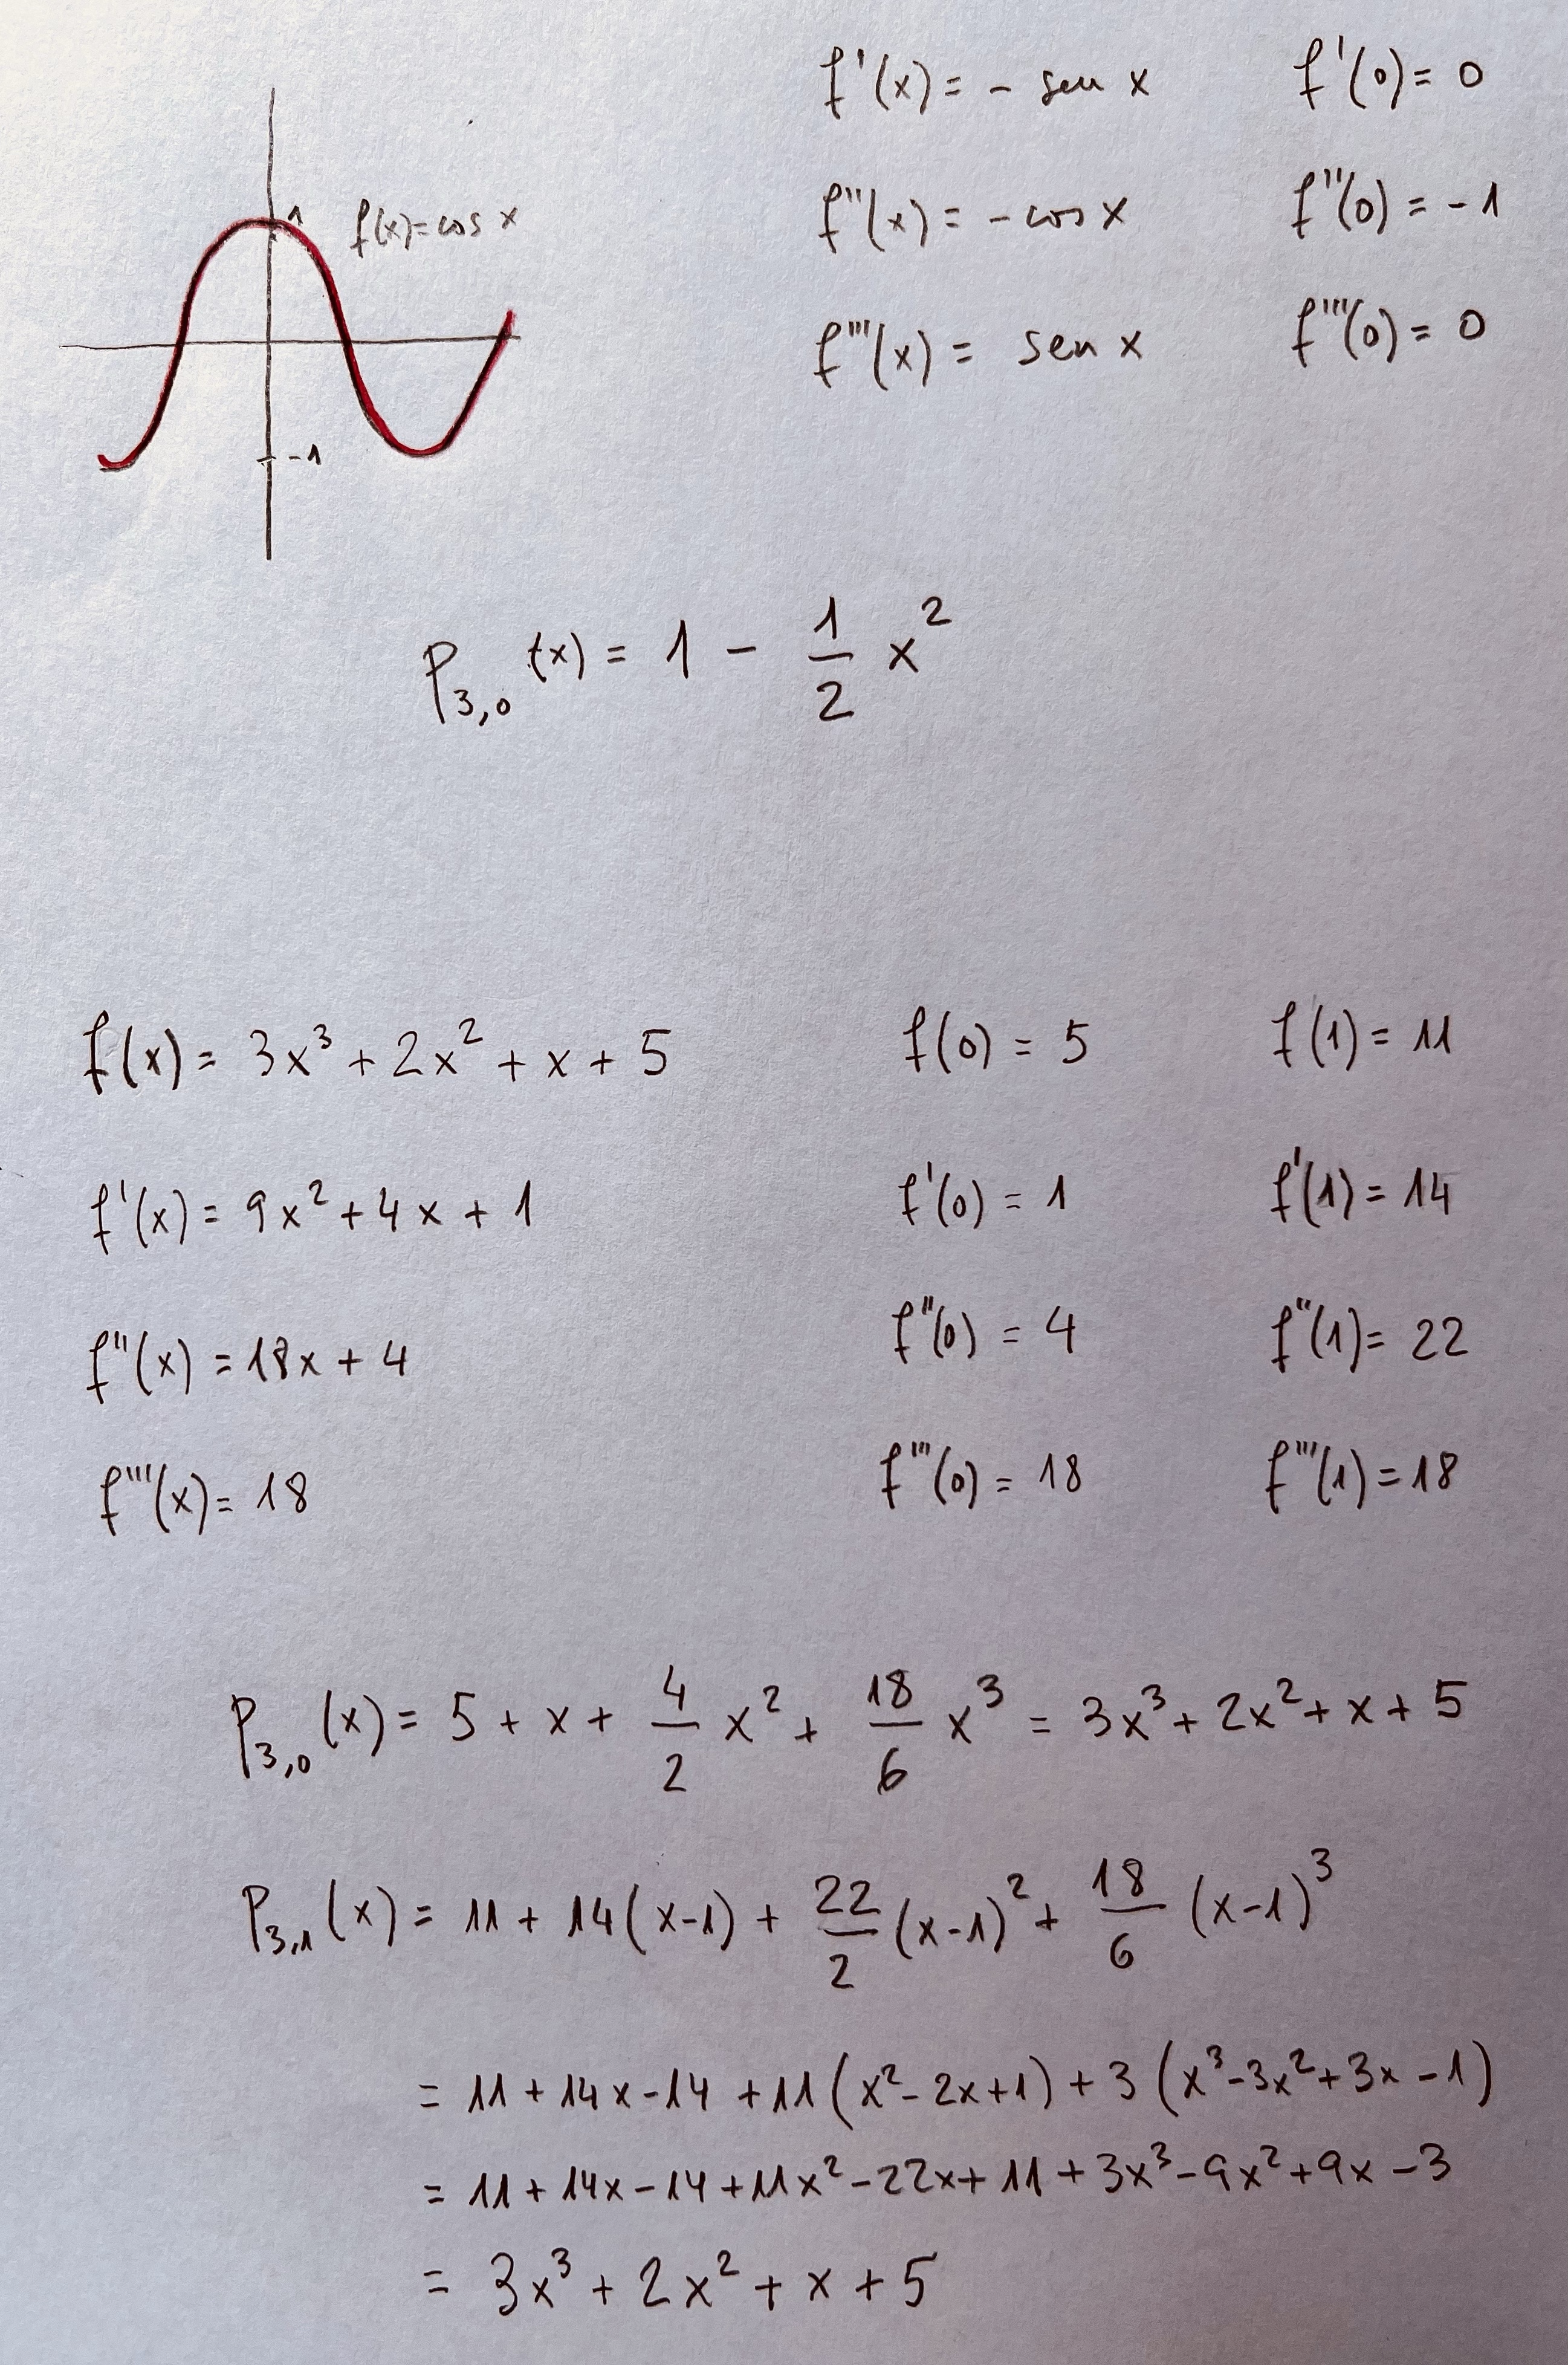 f'(x) = - sen x    f'(0) = 0
1    f(x) = cos x    f''(x) = - cos x    f''(0) = -1
f'''(x) = sen x    f'''(0) = 0
-1
P_{3,0}(x) = 1 - \frac{1}{2} x^2
f(x) = 3x^3 + 2x^2 + x + 5    f(0) = 5    f(1) = 11
f'(x) = 9x^2 + 4x + 1    f'(0) = 1    f'(1) = 14
f''(x) = 18x + 4    f''(0) = 4    f''(1) = 22
f'''(x) = 18    f'''(0) = 18    f'''(1) = 18
P_{3,0}(x) = 5 + x + \frac{4}{2} x^2 + \frac{18}{6} x^3 = 3x^3 + 2x^2 + x + 5
P_{3,1}(x) = 11 + 14(x-1) + \frac{22}{2} (x-1)^2 + \frac{18}{6} (x-1)^3
= 11 + 14x - 14 + 11(x^2 - 2x + 1) + 3(x^3 - 3x^2 + 3x - 1)
= 11 + 14x - 14 + 11x^2 - 22x + 11 + 3x^3 - 9x^2 + 9x - 3
= 3x^3 + 2x^2 + x + 5